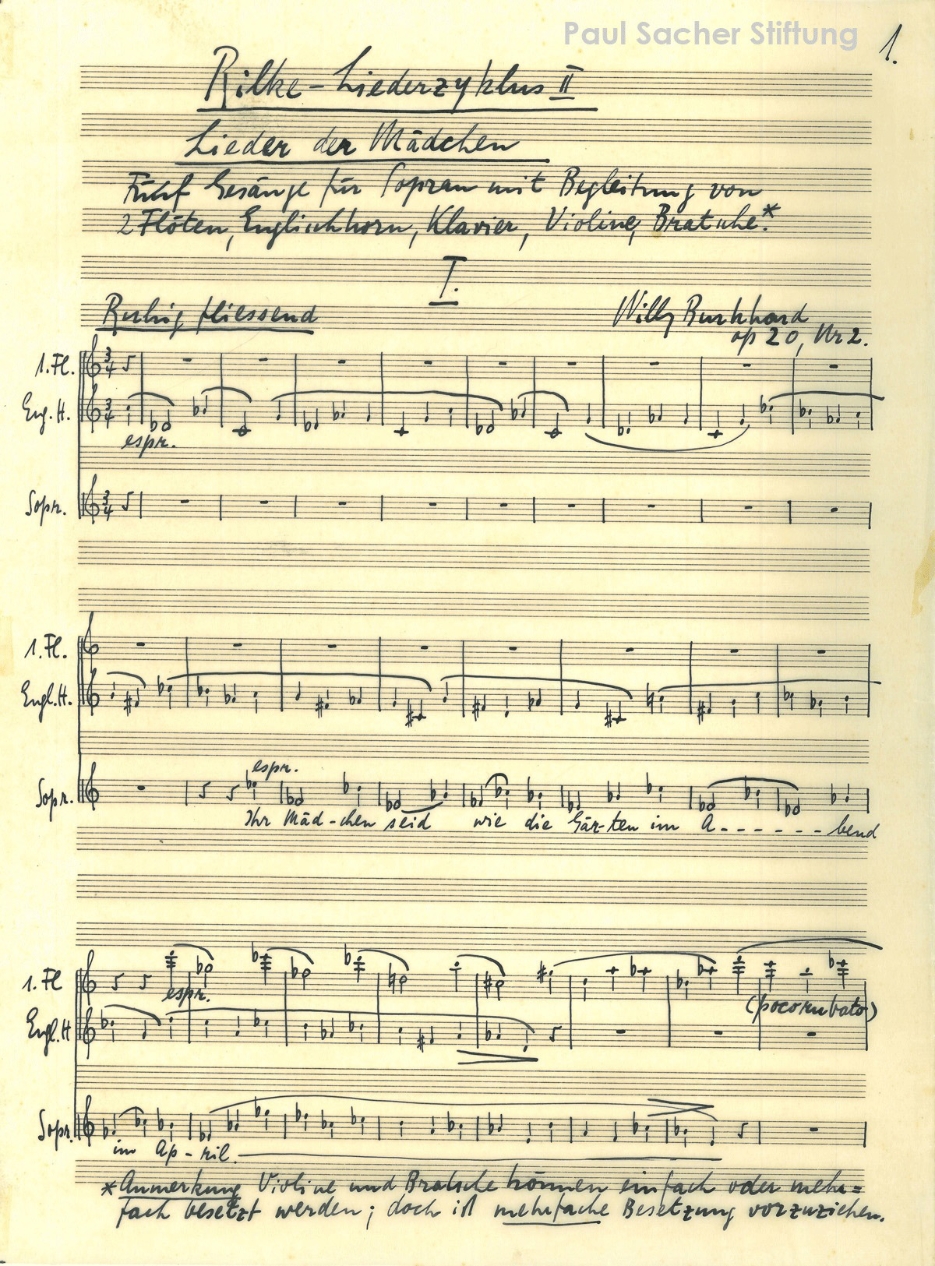 Paul Sacher Stiftung
1.
Rilke-Liederzyklus II
Lieder der Mädchen
Fünf Gesänge für Sopran mit Begleitung von
2 Flöten, Englischhorn, Klavier, Violine, Bratsche.*
I.
Ruhig fliessend
Willy Burkhard
op 20, Nr 2.
1. Fl.
Eng. H.
espr.
Sopr.
1. Fl.
Engl. H.
espr.
Sopr.
Ihr Mäd-chen seid wie die Gär-ten im A------bend
1. Fl
espr.
(poco rubato)
Engl. H
Sopr.
im Ap-ril.
*Anmerkung Violine und Bratsche können einfach oder mehr=
fach besetzt werden; doch ist mehrfache Besetzung vorzuziehen.